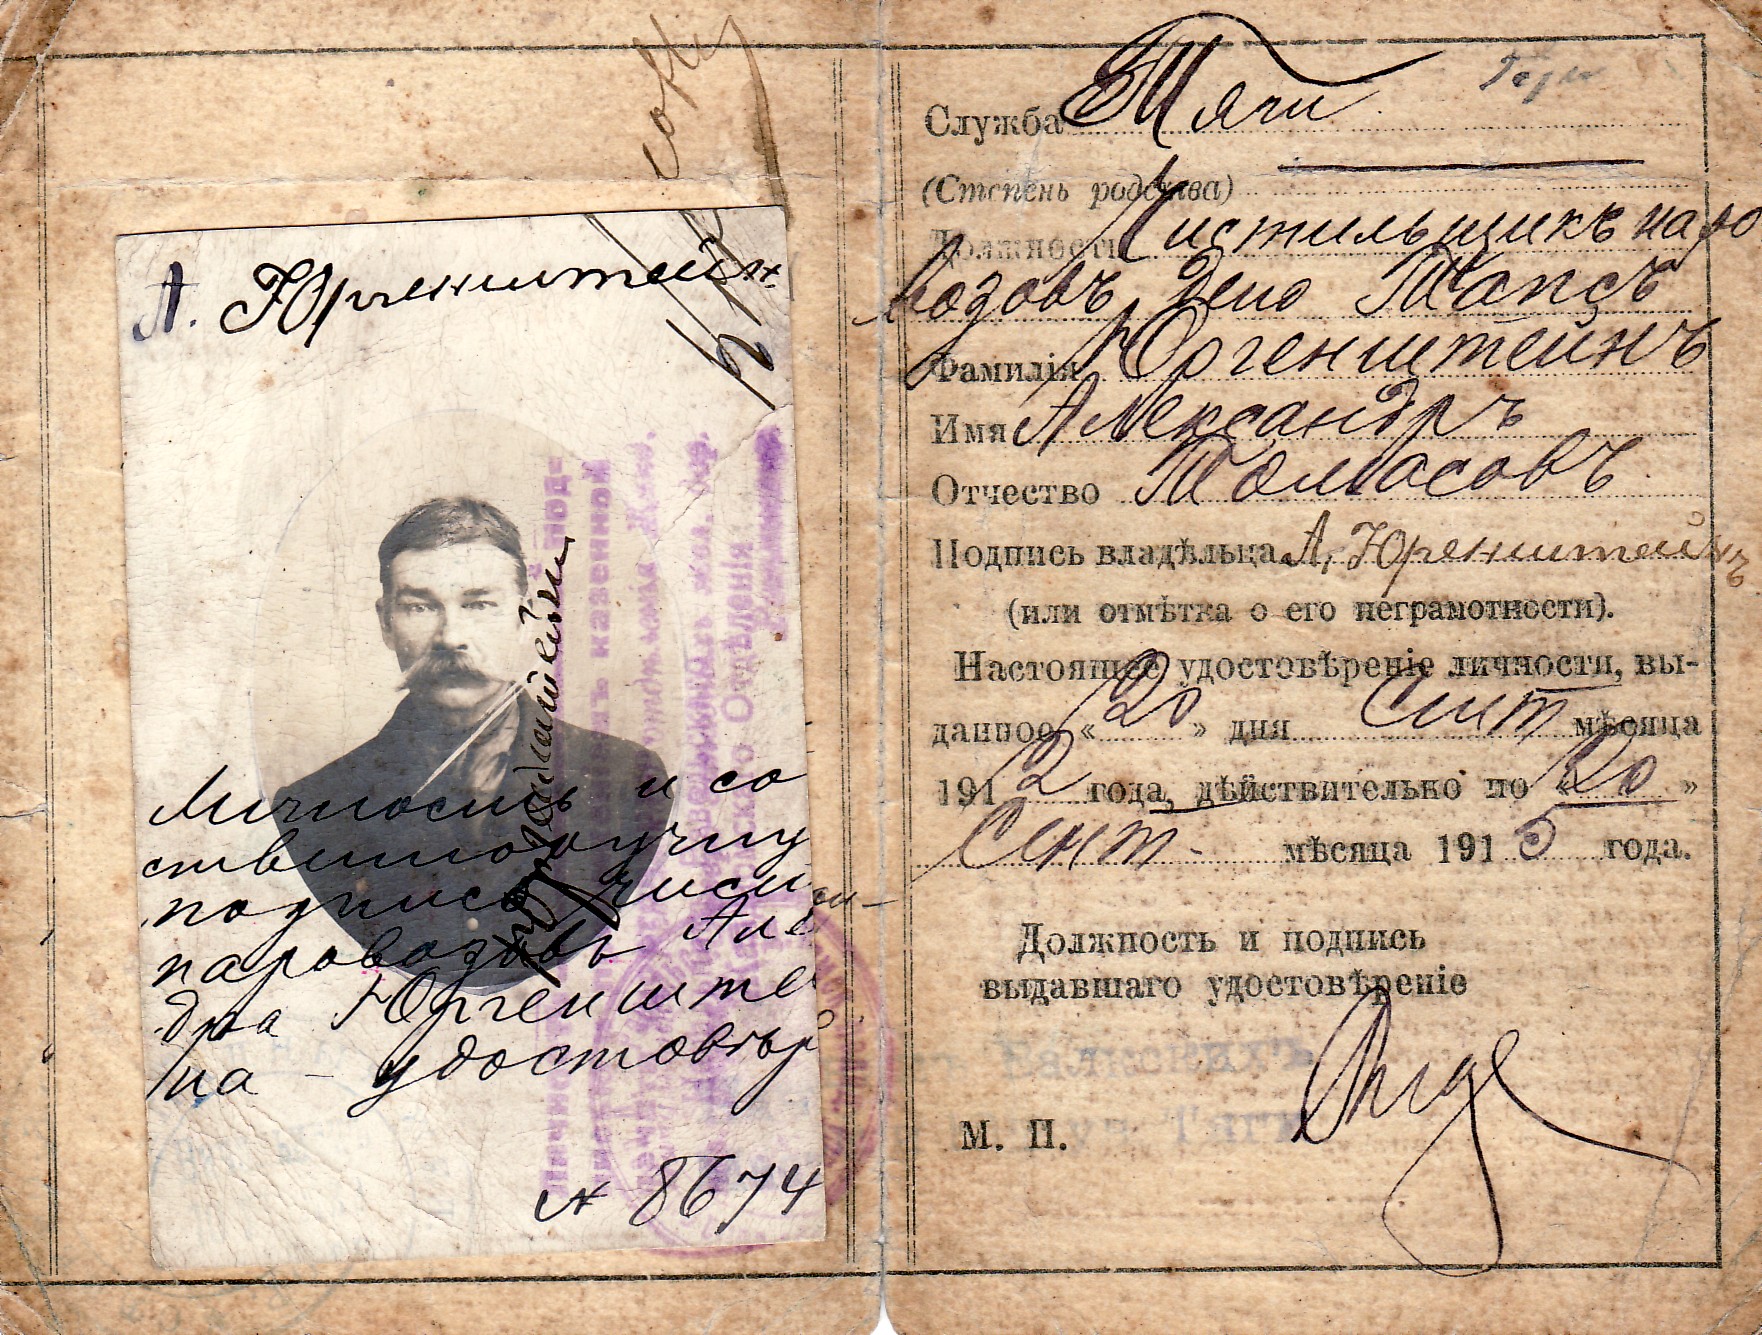 А. Юргенштейн
Личность и со
ственноручную
подпись чист.
паровозовъ Але
дра Юргенште
на - удостовѣр
№ 8674
Служба Тяги
(Степень родства)
Должность Чистильщикъ паро
возовъ Депо Тапсъ
Фамилія Юргенштейнъ
Имя Александръ
Отчество Томасовъ
Подпись владѣльца А. Юренштейнъ
(или отмѣтка о его неграмотности).
Настоящее удостовѣреніе личности, вы-
данное «20» дня Сент мѣсяца
1912 года, дѣйствительно по «20»
Сент. мѣсяца 1915 года.
Должность и подпись
выдавшаго удостовѣреніе
М. П.